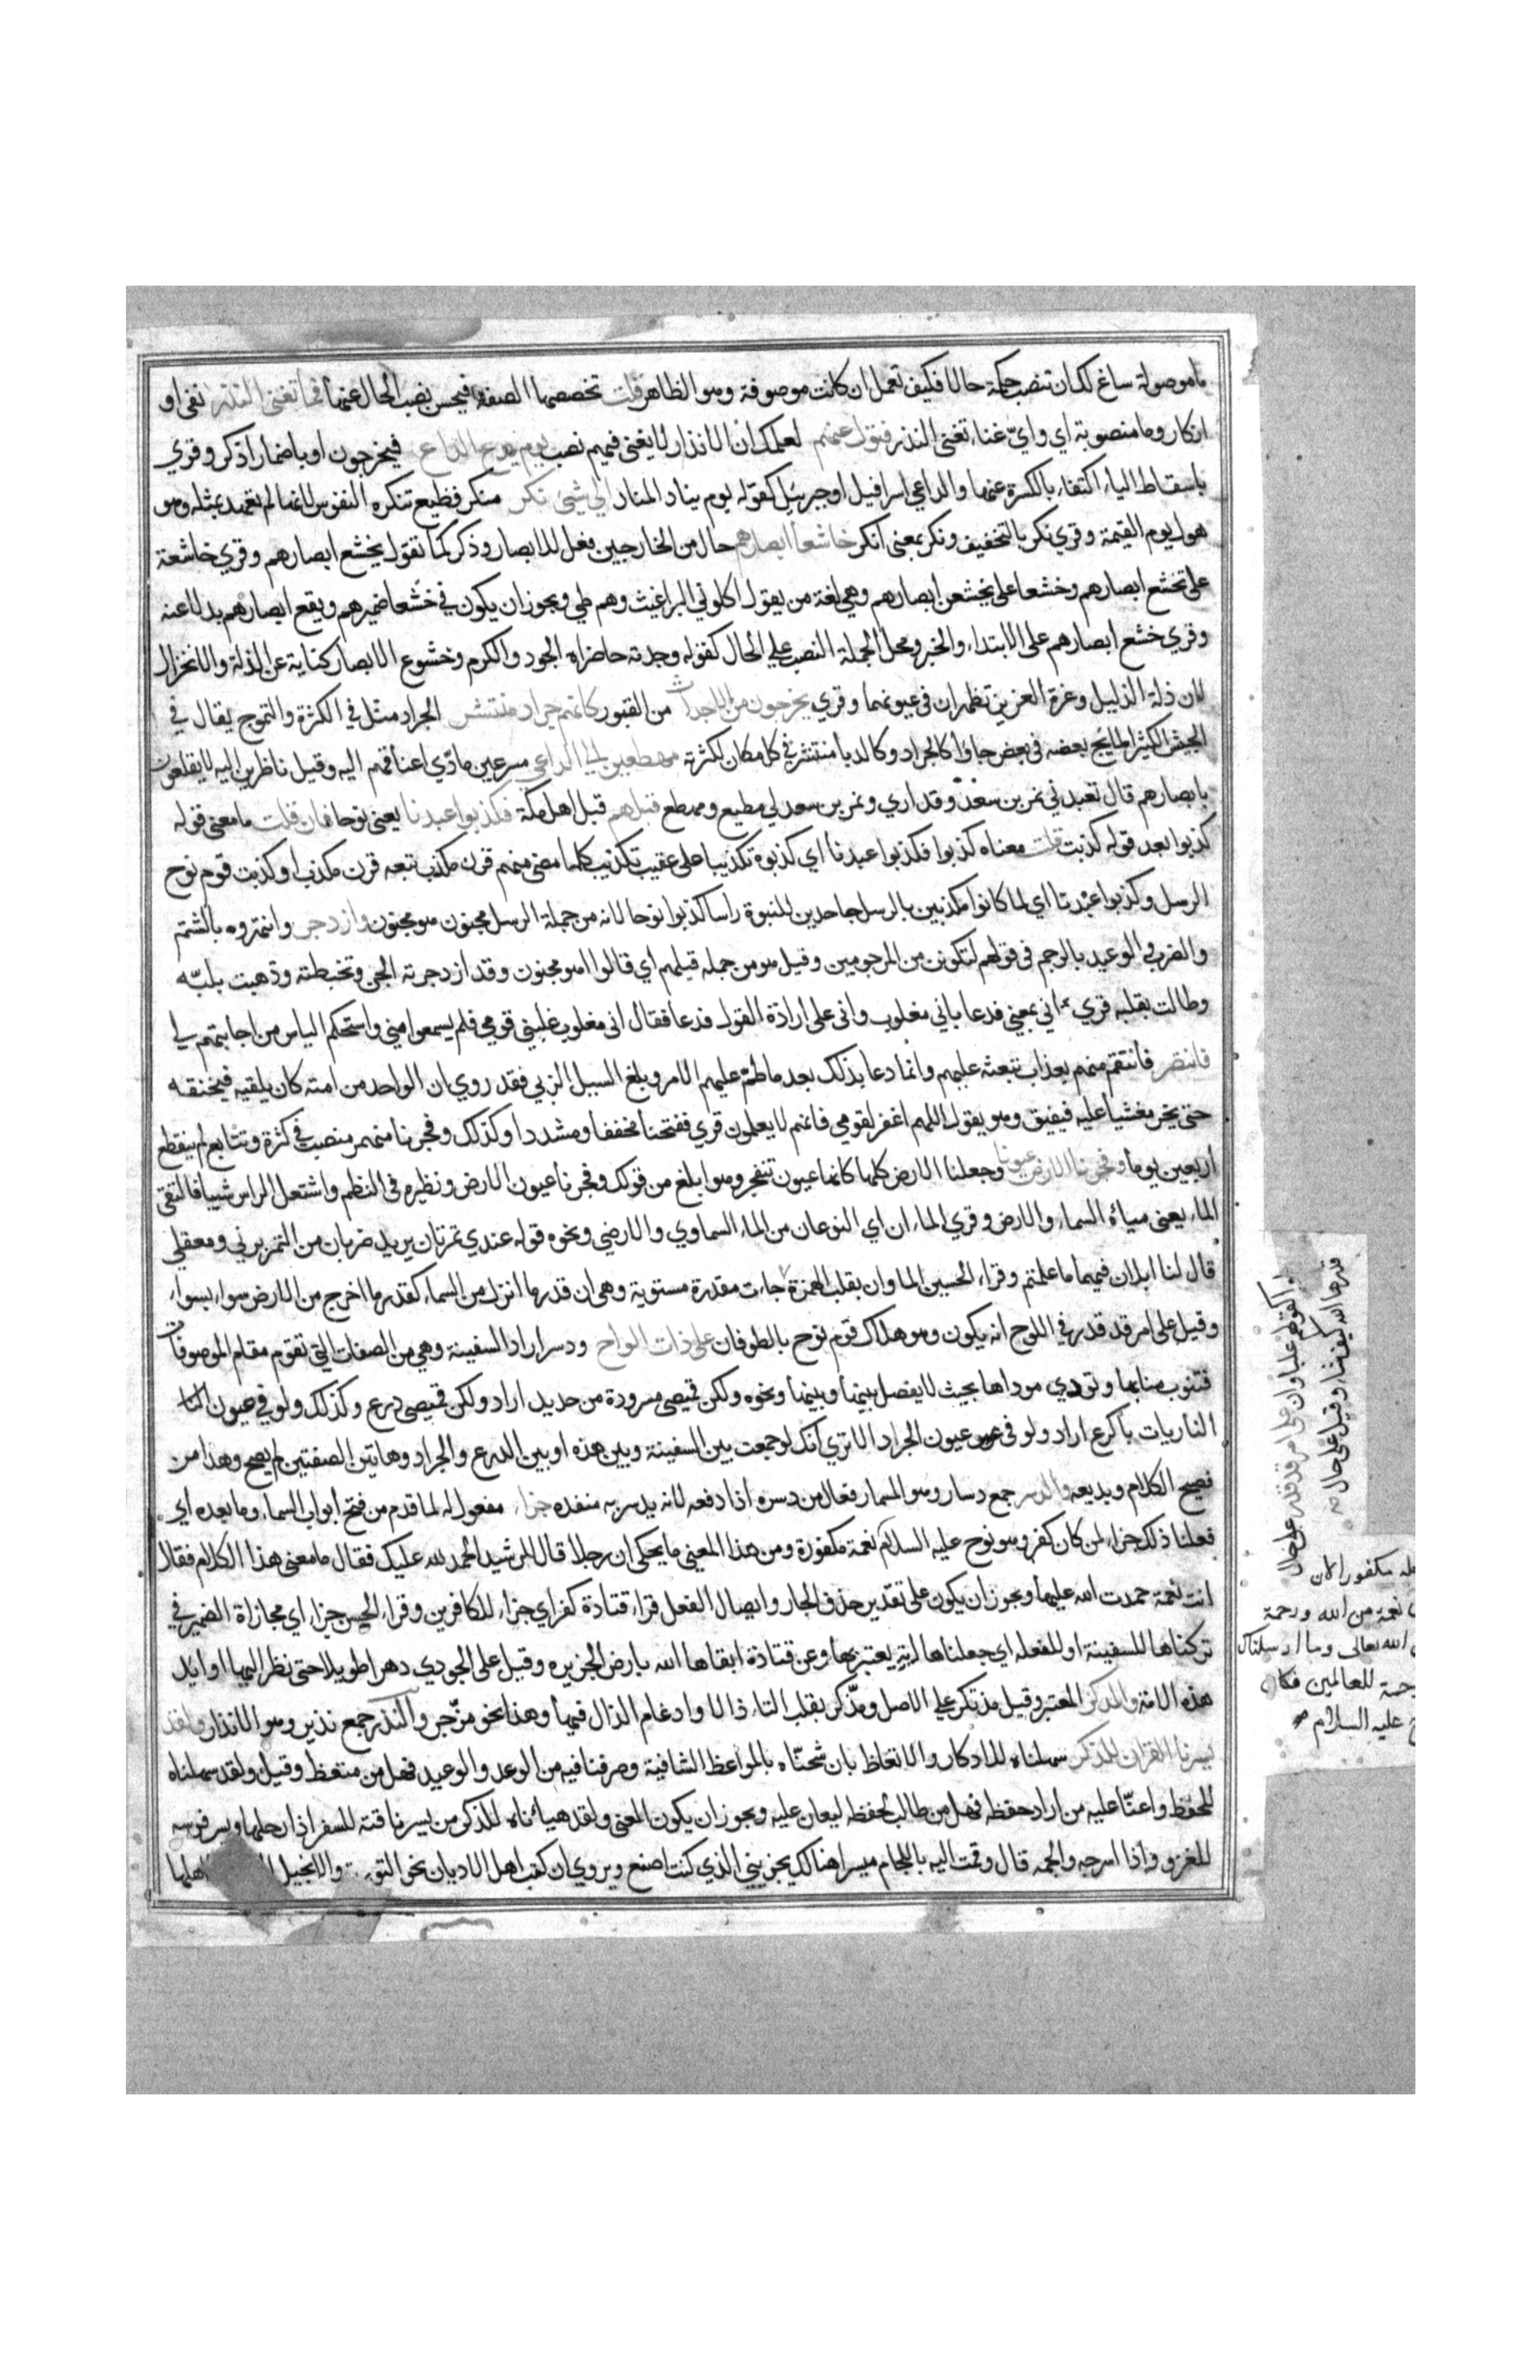 ما موصولة ساغ لك ان تنصب حكمة حالا فكيف تعمل ان كانت موصوفة وهو الظاهر قلت تخصصها الصفة فيحسن نصب الحال عنها فما تغنى النذر نفى او
انكار وما منصوبة اي واي غناء تغنى النذر فتول عنهم لعلمك ان الانذار لا يغنى فيهم نصب يوم يدع الداع فيخرجون او باضمار اذكر وقري
باسقاط الياء اكتفاء بالكسرة عنها والداعي اسرافيل او جبرئيل كقوله يوم يناد المناد الي شئ نكر منكر فظيع تنكره النفوس لانها لم تعهد بمثله وهو
هول يوم القيمة وقري نكر بالتخفيف ونكر بمعنى انكر خاشعا ابصارهم حال من الخارجين فعل للابصار وذكر كما تقول يخشع ابصارهم وقري خاشعة
على تخشع ابصارهم وخشعا على يخشعن ابصارهم وهي لغة من يقول اكلوني البراغيث وهم طي ويجوز ان يكون في خشعا ضميرهم ويقع ابصارهم بدلا عنه
وقري خشع ابصارهم على الابتداء والخبر ومحل الجملة النصب علي الحال كقوله وجدته حاضراه الجود والكرم وخشوع الابصار كناية عن الذلة والانخزال
لان ذلة الذليل وعزة العزيز تظهران في عيونهما وقري يخرجون من الاجداث من القبور كانهم جراد منتشر الجراد مثل في الكثرة والتموج يقال في
الجيش الكثير المايج بعضه في بعض جاوا كالجراد وكالدبا منتشر في كل مكان لكثرته مهطعين الي الداعي مسرعين مادي اعناقهم اليه وقيل ناظرين اليه لا يقلعون
بابصارهم قال تعبدني نمر بن سعد وقد اري ونمر بن سعد لي مطيع ومهطع قبلهم قبل اهل مكة فكذبوا عبدنا يعنى نوحا فان قلت ما معنى قوله
كذبوا بعد قوله كذبت قلت معناه كذبوا فكذبوا عبدنا اي كذبوه تكذيبا على عقيب تكذيب كلما مضى منهم قرن مكذب تبعه قرن مكذب او كذبت قوم نوح
الرسل وكذبوا عبدنا اي لما كانوا مكذبين بالرسل جاحدين للنبوة راسا كذبوا نوحا لانه من جملة الرسل مجنون هو مجنون وازدجر وانتهروه بالشتم
والضرب والوعيد بالرجم في قولهم لتكونن من المرجومين وقيل هو من جمله قيلهم اي قالوا هو مجنون وقد ازدجرته الجن وتخبطته وذهبت بلبه
وطالت بقلبه قري اني بمعني فدعا باني مغلوب واني على ارادة القول فدعا فقال اني مغلوب غلبني قومي فلم يسمعوا مني واستحكم الياس من اجابتهم لي
فانتصر فانتقم منهم بعذاب تبعثه عليهم وانما دعا بذلك بعد ما طم عليهم الامر وبلغ السيل الزبي فقد روي ان الواحد من امته كان يلقيه فيخنقه
حتى يخر مغشيا عليه فيفيق وهو يقول اللهم اغفر لقومي فانهم لا يعلمون قري ففتحنا مخففا ومشددا وكذلك وفجرنا منهمر منصب في كثرة وتتابع لم ينقطع
اربعين يوما وفجرنا الارض عيونا وجعلنا الارض كلها كانها عيون تنفجر وهو ابلغ من قولك وفجرنا عيون الارض ونظيره في النظم واشتعل الراس شيبا فالتقى
الماء يعنى مياه السماء والارض وقري الماء ان اي النوعان من الماء السماوي والارضي ونحوه قوله عندي تمرتان يريد ضربان من التمر برني ومعقلي
قال لنا ابلان فيهما ما علمتم وقراء الحسين الماوان بقلب الهمزة جاءت مقدرة مستوية وهي ان قدر ما انزل من السماء كقدر ما اخرج من الارض سواء بسواء
وقيل على امر قد قدر في اللوح انه يكون وهو هلاك قوم نوح بالطوفان على ذات الواح ودسر اراد السفينة وهي من الصفات التي تقوم مقام الموصوفات
فتنوب منابها وتودي موداها بحيث لا يفصل بينها وبينها ونحوه ولكن قميصى مسرودة من حديد اراد ولكن قميصى درع وكذلك ولو في عيون
النازيات باكرع اراد ولو في عيون الجراد الا تري انك لو جمعت بين السفينة وبين هذه او بين الدرع والجراد وهاتين الصفتين لم يصح وهذا من
فصيح الكلام وبديعه والدسر جمع دسار وهو المسمار فعال من دسره اذا دفعه لانه يدسر به منفذه جزاء مفعول له لما قدم من فتح ابواب السماء وما بعده اي
فعلنا ذلك جزاء لمن كان كفر وهو نوح عليه السلام نعمة مكفورة ومن هذا المعني ما يحكى ان رجلا قال للرشيد الحمد لله عليك فقال ما معنى هذا الكلام فقال
انت نعمة حمدت الله عليها ويجوز ان يكون على تقدير حذف الجار وايصال الفعل قراء قتادة كفر اي جزاء للكافرين وقراء الحسن جزاء اي مجازاة الضمير في
تركناها للسفينة او للفعله اي جعلناها اية يعتبر بها وعن قتادة ابقاها الله بارض الجزيره وقيل على الجودي دهرا طويلا حتى نظر اليها اوايل
هذه الامة والمدكر المعتبر وقيل مذتكر علي الاصل ومذكر بقلب التاء ذالا وادغام الذال فيها وهذا نحو مزجر والنذر جمع نذير وهو الانذار ولقد
يسرنا القران للذكر سهلناه للادكار والاتعاظ بان شحناه بالمواعظ الشافية وصرفنا فيه من الوعد والوعيد فهل من متعظ وقيل ولقد سهلناه
للحفظ واعنا عليه من اراد حفظه فهل من طالب لحفظه ليعان عليه ويجوز ان يكون المعنى ولقد هياناه للذكر من يسر ناقته للسفر اذا رحلها ويسر فرسه
للغزو واذا اسرجه والجمه قال وقمت اليه باللجام ميسرا هنالك يجزيني الذي كنت اصنع ويروي ان كتب اهل الاديان نحو والانجيل اهلها
قدرها الله كيف شاء وقيل على حال
على امر قد قدر على حال
مكفورا لان
نعمة من الله ورحمة
الله تعالى وما ارسلناك
رحمة للعالمين فكان
عليه السلام